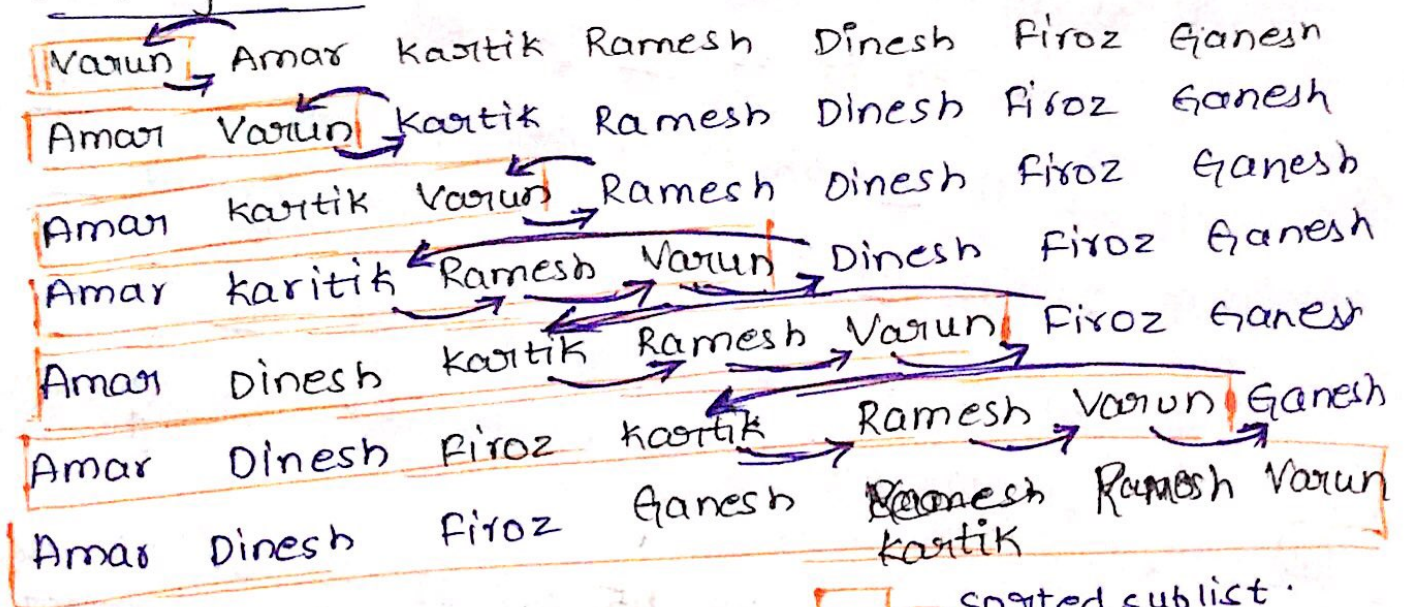 Varun Amar Kartik Ramesh Dinesh Firoz Ganesh
Amar Varun Kartik Ramesh Dinesh Firoz Ganesh
Amar Kartik Varun Ramesh Dinesh Firoz Ganesh
Amar Karitik Ramesh Varun Dinesh Firoz Ganesh
Amar Dinesh Kartik Ramesh Varun Firoz Ganesh
Amar Dinesh Firoz Kartik Ramesh Varun Ganesh
Amar Dinesh Firoz Ganesh Ramesh Varun
Kartik
sorted sublist.